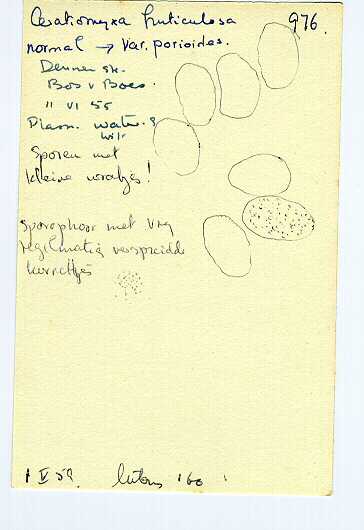 Ceratiomyxa fruticulosa 976.
normal → var. porioides.
Dennen st.
Bos v Boes.
11 VI 55
Plasm. water &
wit
Sporen met
kleine wratjes!
Sporophoor met vrij
regelmatig verspreidde
korreltjes
1 V 59.